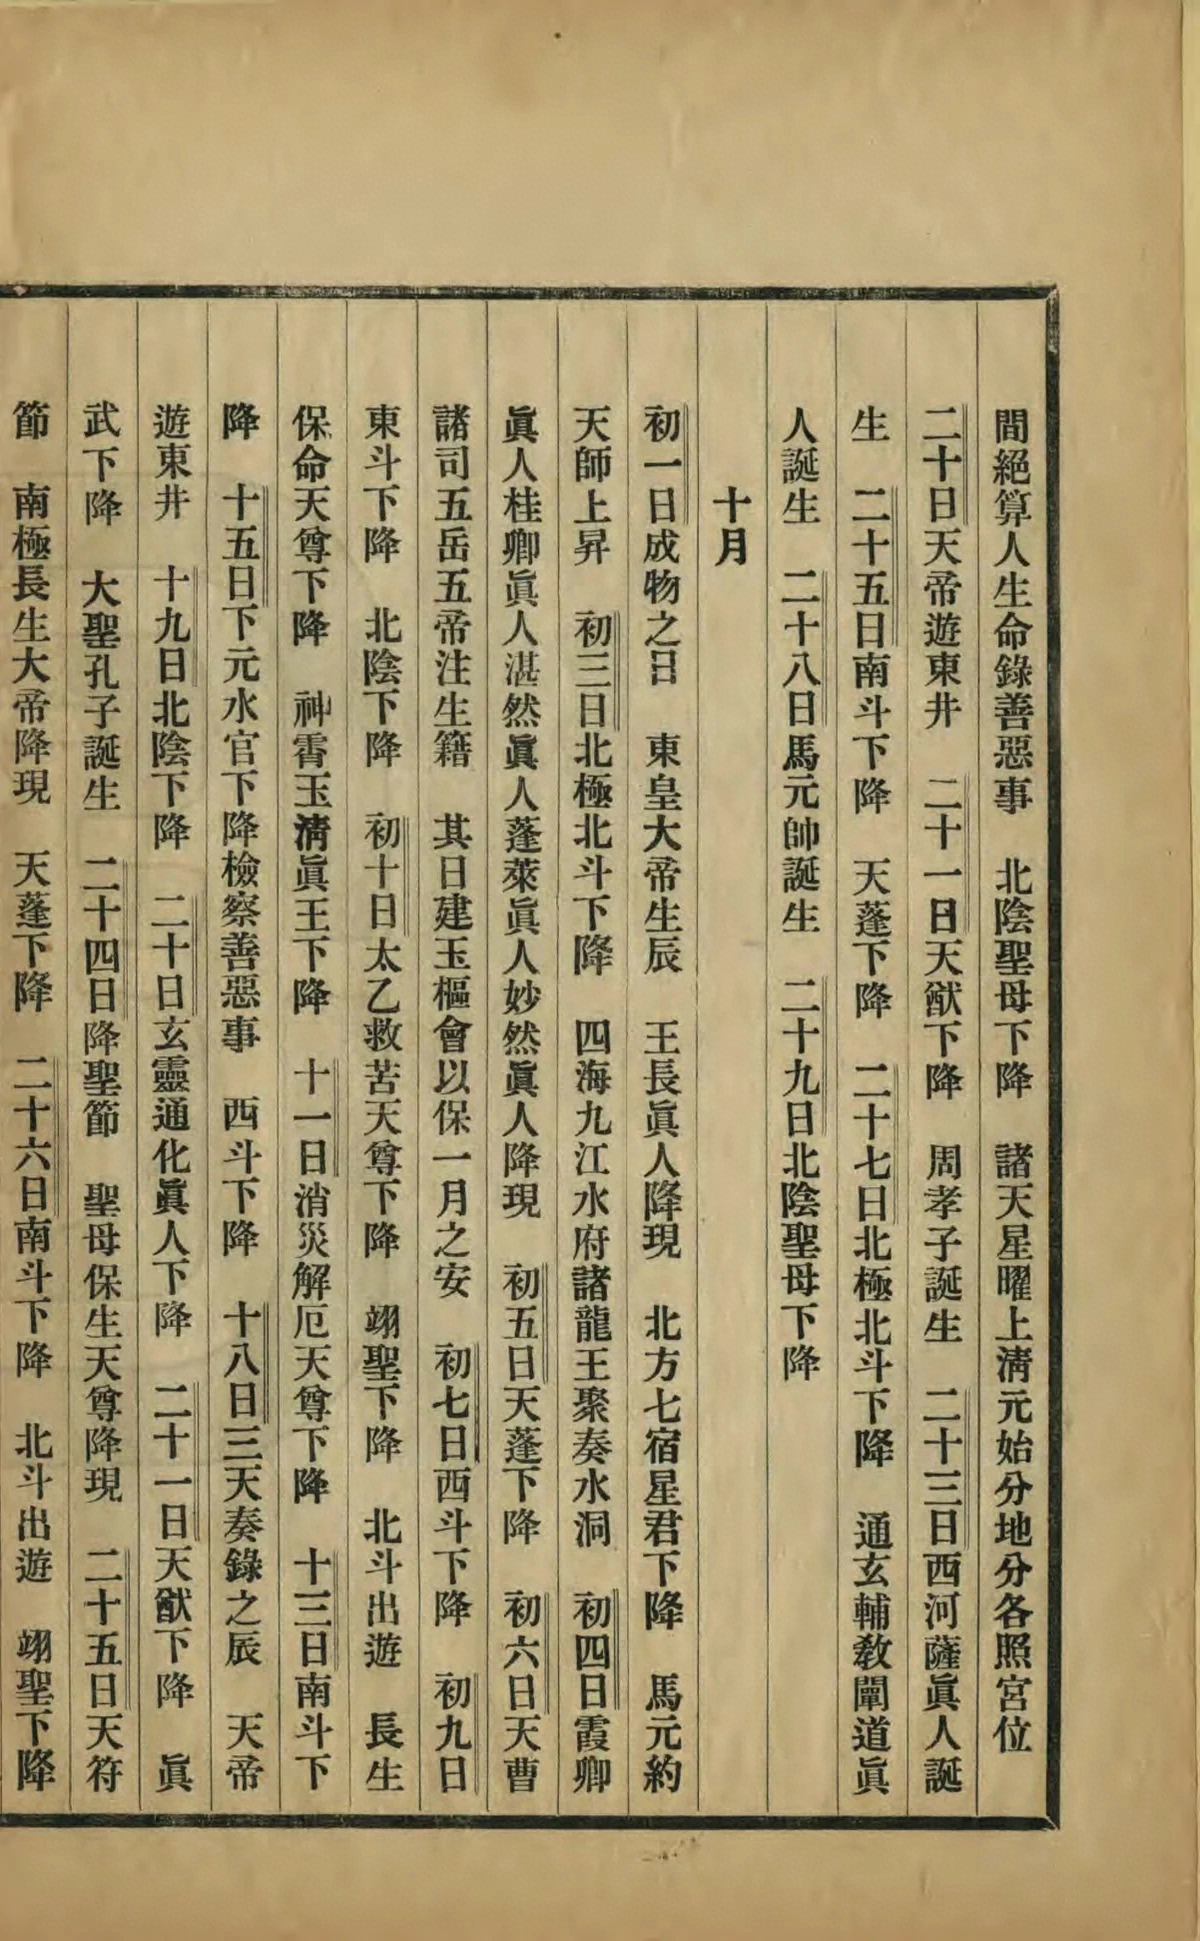 間絕算人生命錄善惡事　北陰聖母下降　諸天星曜上淸元始分地分各照宮位
二十日天帝遊東井　二十一日天猷下降　周孝子誕生　二十三日西河薩眞人誕
生　二十五日南斗下降　天蓬下降　二十七日北極北斗下降　通玄輔敎闡道眞
人誕生　二十八日馬元帥誕生　二十九日北陰聖母下降
十月
初一日成物之日　東皇大帝生辰　王長眞人降現　北方七宿星君下降　馬元約
天師上昇　初三日北極北斗下降　四海九江水府諸龍王聚奏水洞　初四日霞卿
眞人桂卿眞人湛然眞人蓬萊眞人妙然眞人降現　初五日天蓬下降　初六日天曹
諸司五岳五帝注生籍　其日建玉樞會以保一月之安　初七日西斗下降　初九日
東斗下降　北陰下降　初十日太乙救苦天尊下降　翊聖下降　北斗出遊　長生
保命天尊下降　神霄玉淸眞王下降　十一日消災解厄天尊下降　十三日南斗下
降　十五日下元水官下降檢察善惡事　西斗下降　十八日三天奏錄之辰　天帝
遊東井　十九日北陰下降　二十日玄靈通化眞人下降　二十一日天猷下降　眞
武下降　大聖孔子誕生　二十四日降聖節　聖母保生天尊降現　二十五日天符
節　南極長生大帝降現　天蓬下降　二十六日南斗下降　北斗出遊　翊聖下降